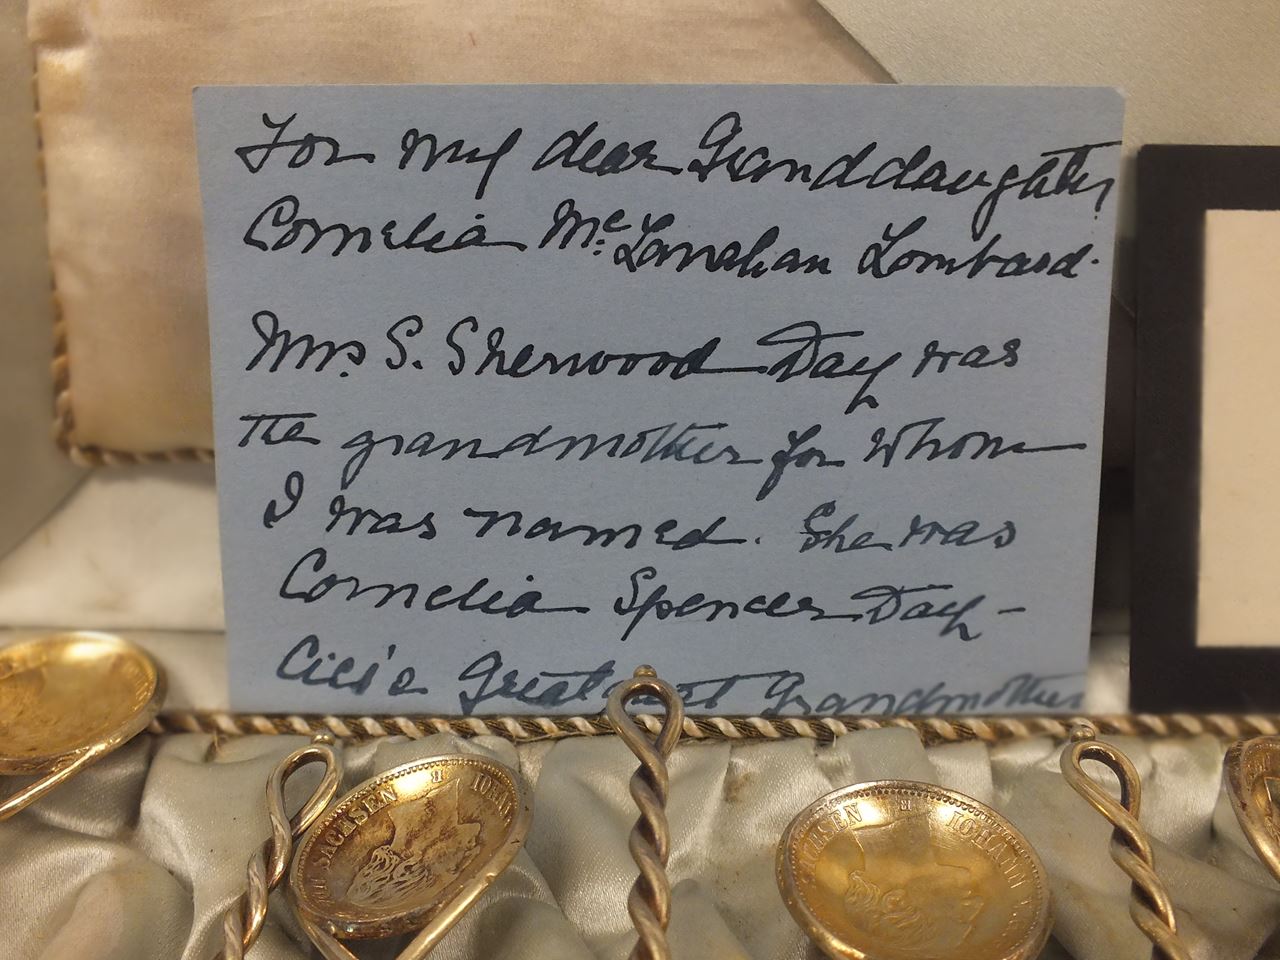 For my dear Granddaughter
Cornelia Mc.Lanahan Lombard.
Mrs. S. Sherwood Day was
the grandmother for whom
I was named. She was
Cornelia Spencer Day -
Cici's Great Great Grandmother
SACHSEN B IOHANN
SACHSEN B IOHANN